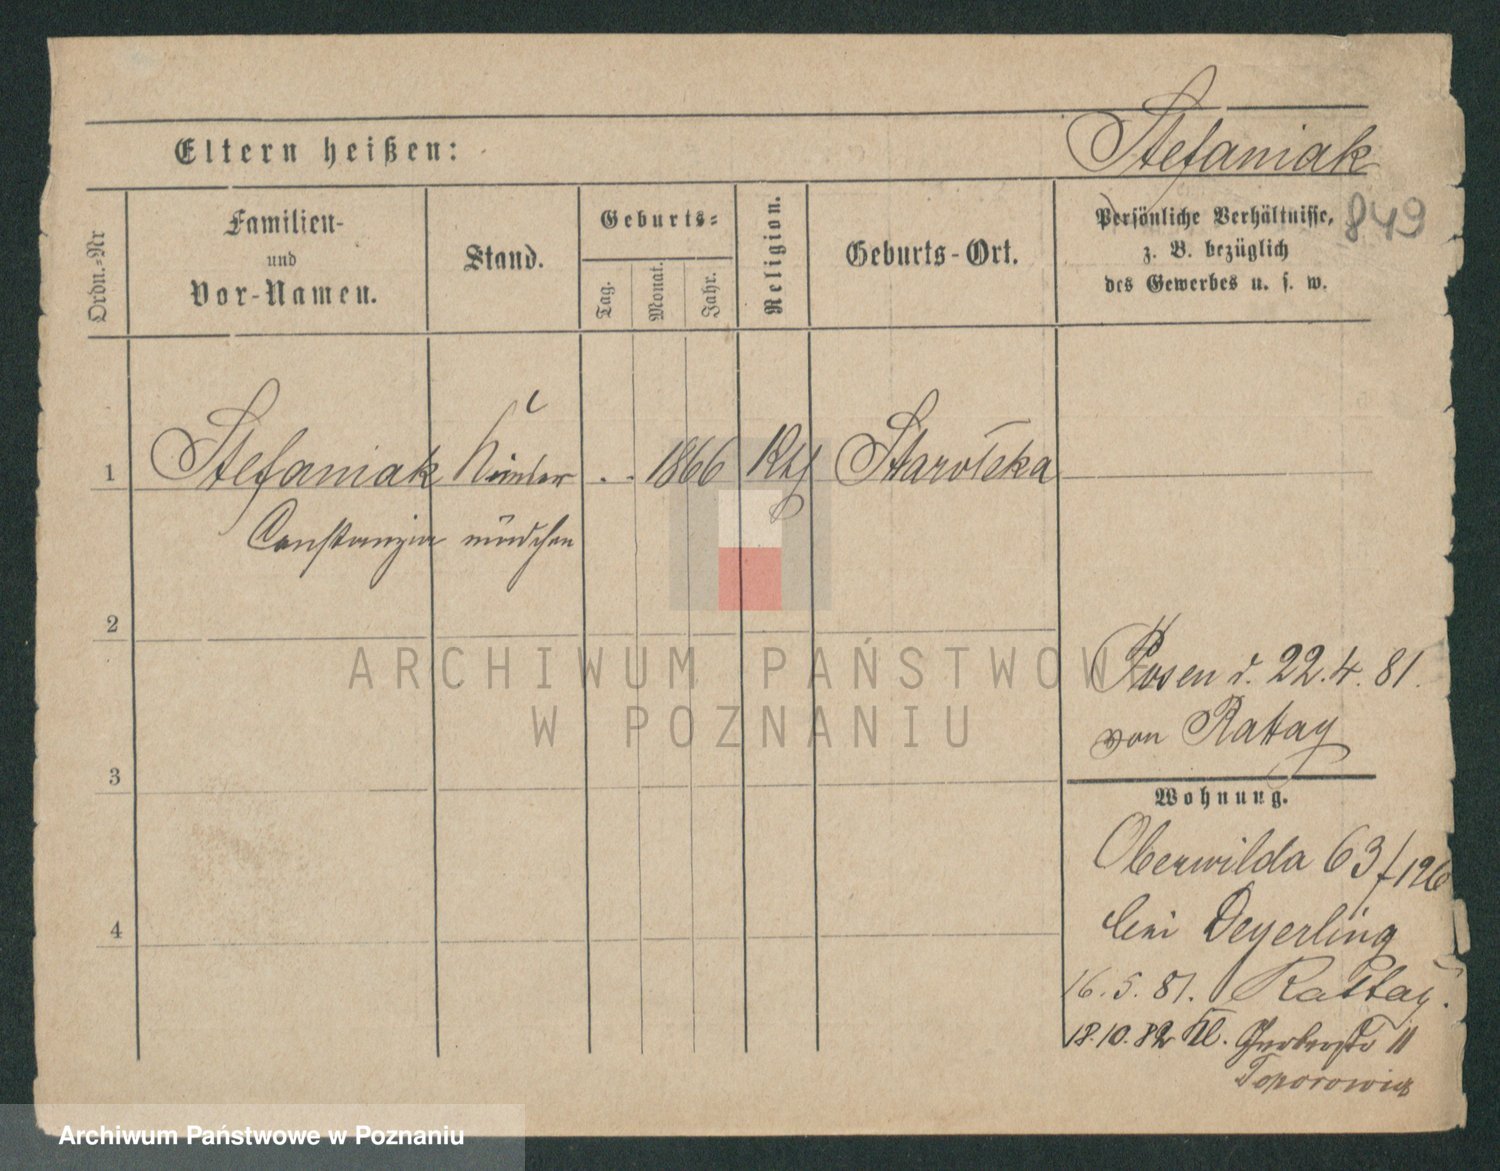 Stefaniak
Eltern heißen:
849
Ordn.-Nr
Familien-
und
Vor-Namen.
Stand.
Geburts-
Tag.
Monat.
Jahr.
Religion.
Geburts-Ort.
Persönliche Verhältnisse,
z. B. bezüglich
des Gewerbes u. s. w.
1 Stefaniak Kinder . . 1866 Kth Starołeka
Constanzia mädchen
2
Posen d. 22.4.81.
von Rattay
3
Wohnung.
Oberwilda 63/126
bei Deyerling
4
16.5.81. Rattay.
18.10.82 Kl. Gerberstr 11
Toporowicz
ARCHIWUM PAŃSTWOW
W POZNANIU
Archiwum Państwowe w Poznaniu